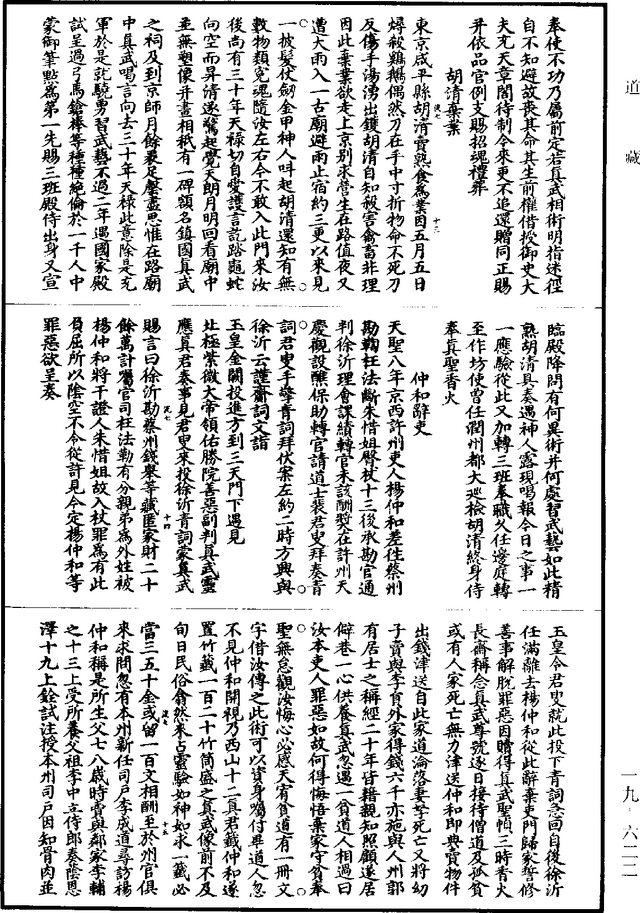 道藏
奉使不功乃屬前定若真武相術明指迷徑
自不知避故喪其命其生前權借授御史大
夫充天章閣待制令來更不追還贈同正賜
并依品官例支賜招魂禮葬
胡清棄業
東京咸平縣胡清賣熟食為業因五月五日
燖殺鵝鴨偶然刀在手中寸折物命不死刀
反傷手湯湧出鑊胡清自知殺害禽畜非理
因此棄業欲走上京別求營生在路值夜又
遭大雨入一古廟避雨止宿約三更以來見
一披髮仗劒金甲神人叫起胡清還知有無
數物類冤魂隨汝左右今不敢入此門來汝
後尚有三十年天祿切自愛護言訖踏龜蛇
向空而昇清遂驚起覺天朗月明回看廟中
並無塑像并畫相秖有一碑額名鎮國真武
之祠及到京師月餘裹足罄盡思惟在路廟
中真武唱言向去三十年天祿此意除是充
軍於是就驍勇習武藝不過二年遇國家殿
試呈過弓馬鎗棒等種種絕倫於一千人中
蒙御筆點為第一先賜三班殿侍出身又宣
臨殿降問有何異術并何處習武藝如此精
熟胡清具奏遇神人露現唱報今日之事一
一應驗從此又加轉三班奉職久任邊庭轉
至作坊使曹任潤州都大廵檢胡清終身侍
奉真聖香火
仲和辭吏
天聖八年京西許州吏人楊仲和差往蔡州
勘鞫枉法斷朱惜姐臀杖十三後承勘官通
判徐沂理會課績轉官未該酬獎在許州天
慶觀設醮保助轉官請道士裴君叟拜奏青
詞君叟手擎青詞拜伏案左約二時方興與
徐沂云謹齋詞文詣
玉皇金闕投進方到三天門下遇見
北極紫微大帝領佑勝院善惡副判真武靈
應真君奏事見君叟來投徐沂青詞蒙真武
賜言曰徐沂勘蔡州錢舉等藏匿家財二十
餘萬計屬官司枉法勒有分親弟為外姓被
楊仲和將干證人朱惜姐故入杖罪為有此
負屈所以陰空不令從許見今定楊仲和等
罪惡欲呈奏
玉皇令君叟就此投下青詞急回自後徐沂
任滿離去楊仲和從此辭棄吏門歸家誓修
善事解脫罪惡因贖得真武聖幀三時香火
長齋稱念真武尊號逐日接待僧道及孤貧
或有人家死亡無力津送仲和即典賣物件
出錢津送自此家道淪落妻孥死亡又將幼
子賣與李育外家得錢六千亦施與人州郭
有居士之稱經二十年皆藉親知照顧遂居
僻巷一心供養真武忽遇一貧道人相過曰
汝本吏人罪惡如故何得悔悟棄家守貧奉
聖無怠觀汝悔心必感天宥貧道有一冊文
字借汝傳之此術可以資身囑付畢道人忽
不見仲和開視乃西山十二真君籤仲和遂
置竹籤一百二十竹筒盛之真武像前不及
旬日民俗翕然來占靈驗如神如求一籤必
當三五十金或留一百文相酬至於州官俱
來求問忽有本州新任司戶李成道尋訪楊
仲和稱是所生父七八歲時賣與鄰家李輔
之十三上受所養父祖李中立侍郎奏蔭恩
澤十九上銓試注授本州司戶因知骨肉並
一九·六二二